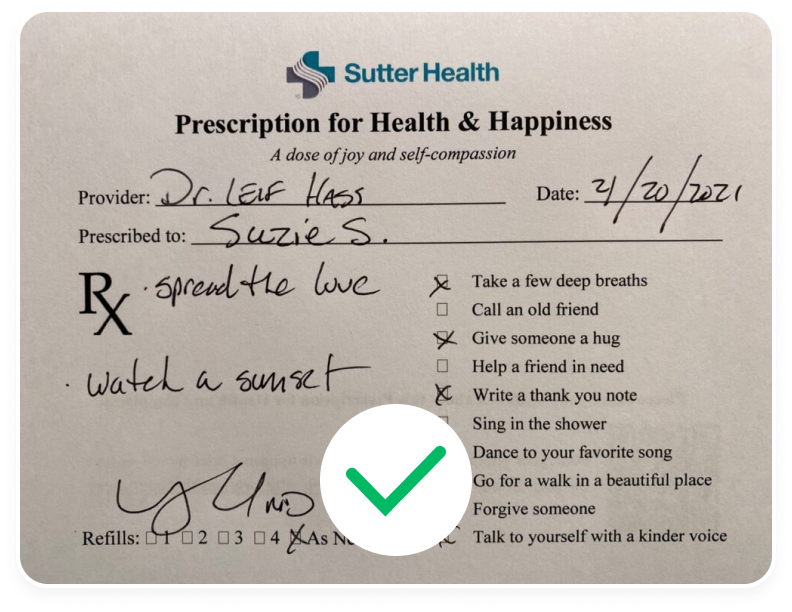 Sutter Health
Prescription for Health & Happiness
A dose of joy and self-compassion
Provider: Dr. LEIF HASS Date: 2/20/2021
Prescribed to: Suzie S.
Rx · spread the love
· watch a sunset
Take a few deep breaths
Call an old friend
Give someone a hug
Help a friend in need
Write a thank you note
Sing in the shower
Dance to your favorite song
Go for a walk in a beautiful place
Forgive someone
Talk to yourself with a kinder voice
Refills: 1 2 3 4 As